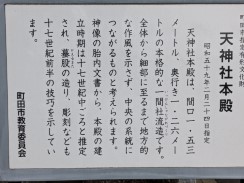 町田市指定有形文化財
天神社本殿
昭和五十九年二月二十四日指定
天神社本殿は、間口一・五三
メートル、奥行き一・二六メー
トルの本格的な一間社流造です。
全体から細部に至るまで地方的
な作風を示さず、中央の系統に
つながるものと考えられます。
神像の胎内文書から、本殿の建
立時期は十七世紀中ごろと推定
され、墓股の造り、彫刻なども
十七世紀前半の技巧を示してい
ます。
町田市教育委員会